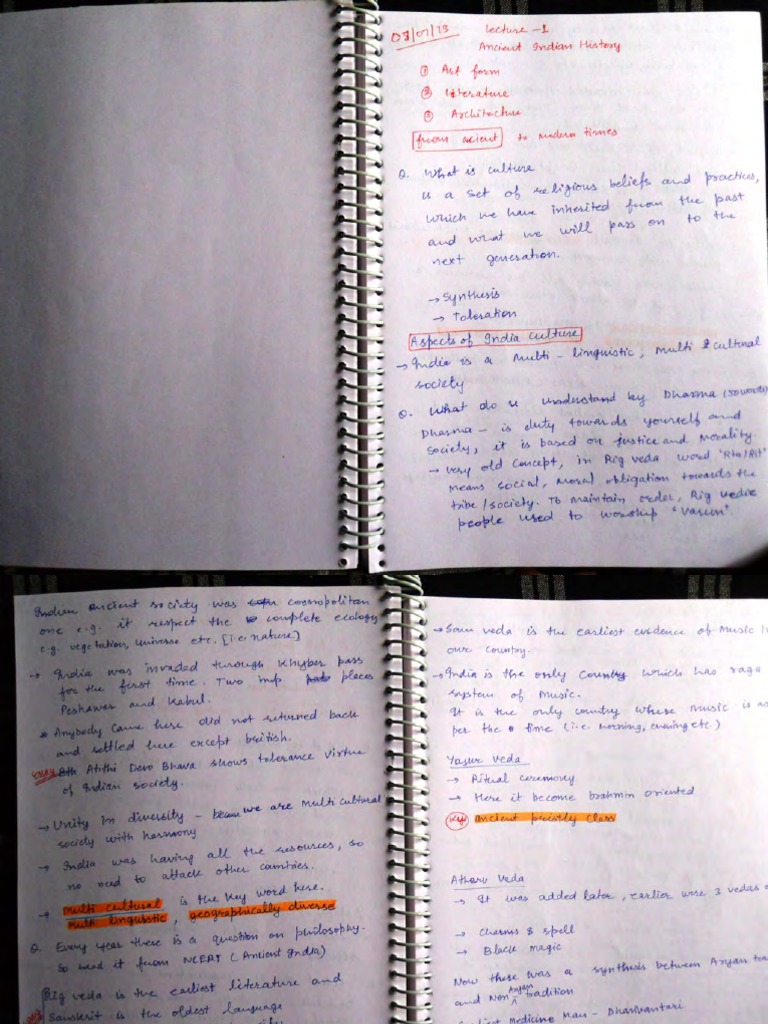 03/07/23 Lecture -1
Ancient Indian History
① Art form
② literature
③ Architecture
from acient to modern times
Q. What is culture
is a set of religious beliefs and practices,
which we have inherited from the past
and what we will pass on to the
next generation.
→ Synthesis
→ Toleration
Aspects of India Culture
→ India is a multi - linguistic, multi cultural
society
Q. What do u understand by Dharma
Dharma - is duty towards yourself and
society, it is based on justice and morality.
→ very old concept, in Rig veda word 'Rta/Rit'
means social, moral obligation towards the
tribe/society. To maintain order, Rig vedic
people used to worship 'Varun'.
Indian ancient society was cosmopolitan
one e.g. it respect the complete ecology
e.g. vegetation, universe etc. [i.e. nature]
→ India was invaded through Khyber pass
for the first time. Two imp. places
Peshawar and Kabul.
* Anybody came here did not returned back
and settled here except british.
Atithi Devo Bhava shows tolerance virtue
of Indian society.
→ Unity in diversity - we are multi cultural
society with harmony
→ India was having all the resources, so
no need to attack other countries.
→ multi cultural is the key word here.
multi linguistic, geographically diverse
Q. Every year there is a question on philosophy.
So read it from NCERT (Ancient India)
Rig veda is the earliest literature and
Sanskrit is the oldest language
→ Sam veda is the earliest evidence of Music in
our country.
→ India is the only country which has raga
system of Music.
It is the only country where music is as
per the time (i.e. morning, evening etc.)
Yajur Veda
→ Ritual ceremony
→ Here it become brahmin oriented
ancient priestly class
Atharv Veda
→ It was added later, earlier were 3 vedas
→ Charms & spell
→ Black magic
Now there was a synthesis between Aryan
and Non Aryan tradition
Medicine Man - Dhanvantari